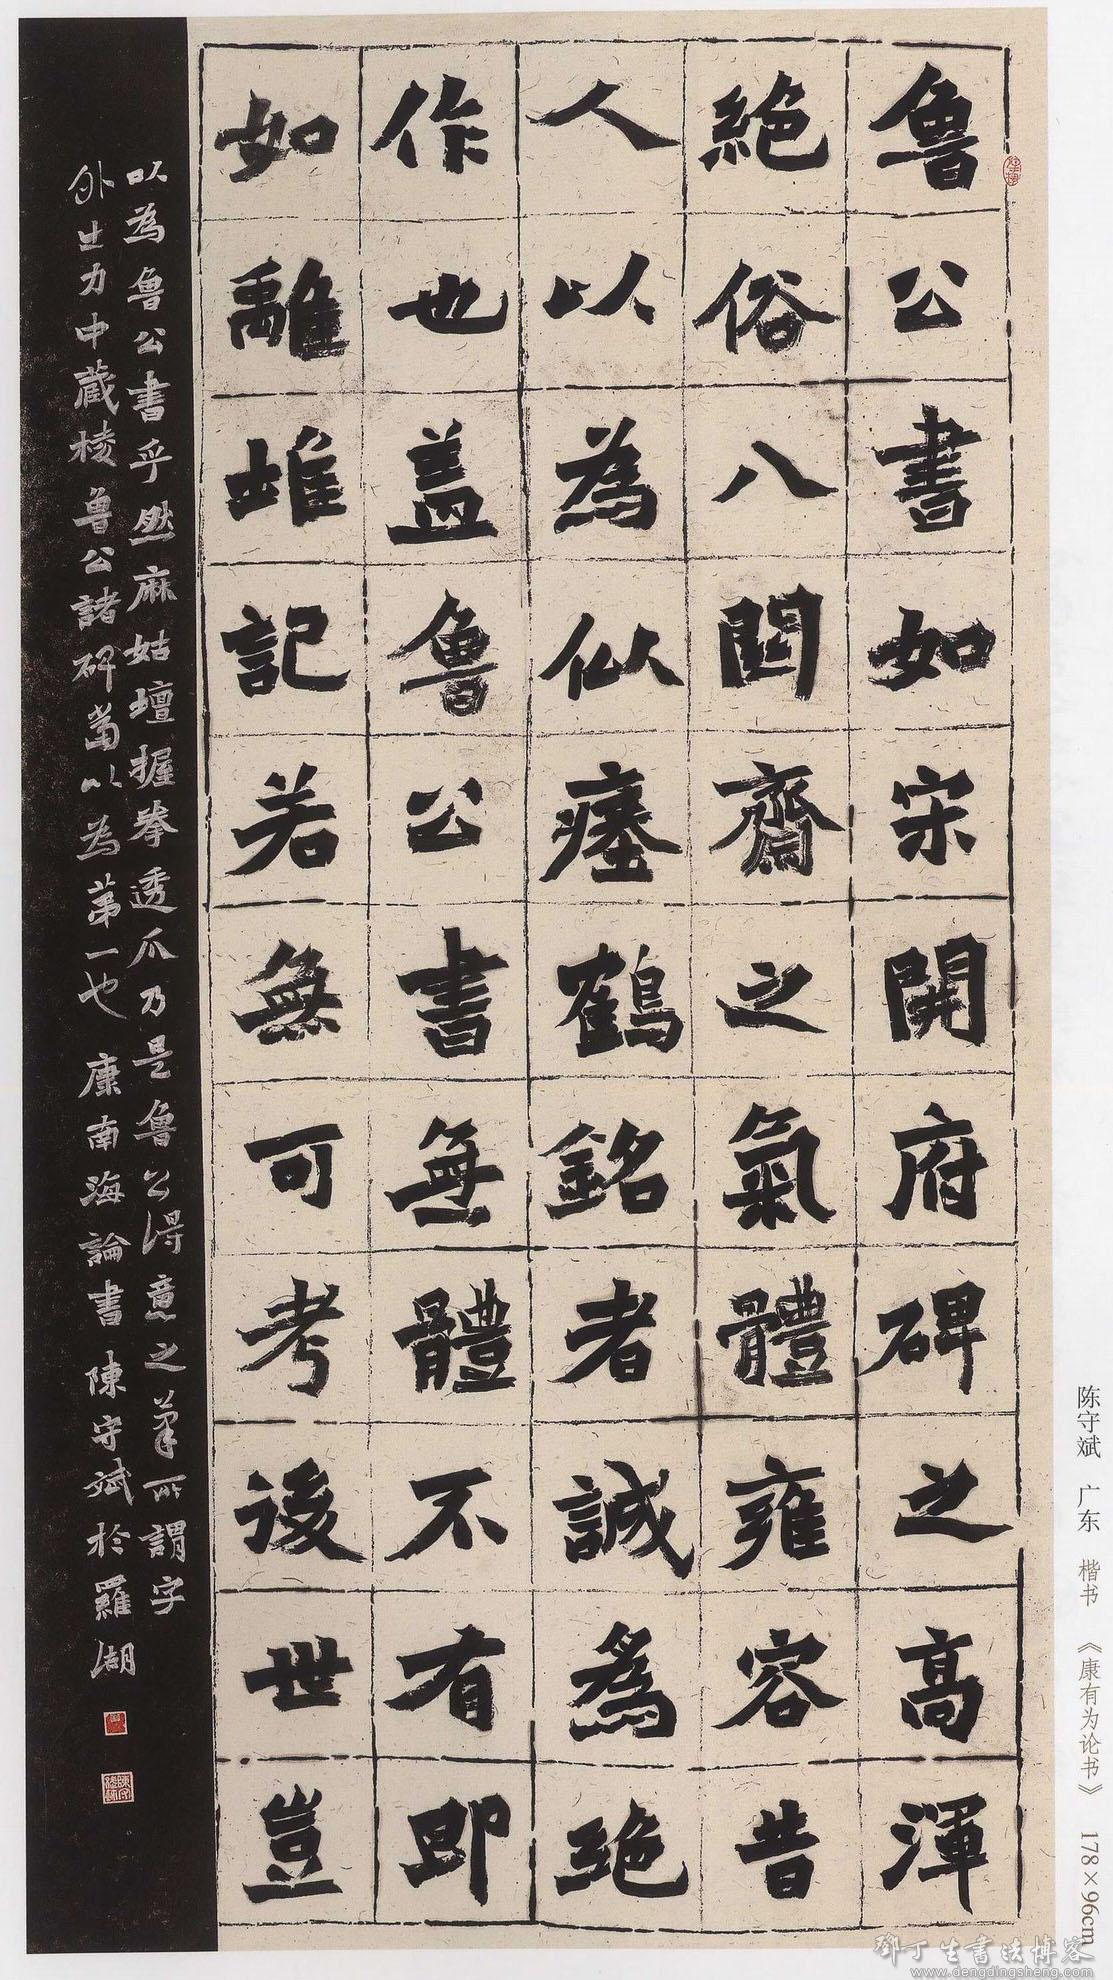 魯公書如宋開府碑之高渾
絕俗八關齋之氣體雍容昔
人以為似瘞鶴銘者誠為絕
作也蓋魯公書無體不有即
如離堆記若無可考後世豈
以為魯公書乎然麻姑壇握拳透爪乃是魯公得意之筆所謂字
外出力中藏棱魯公諸碑當以為第一也 康南海論書 陳守斌於羅湖
陈守斌 广东 楷书 《康有为论书》 178×96cm
鄧丁生書法博客
www.dengdingsheng.com